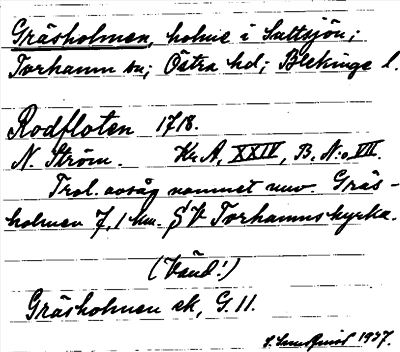 Gräsholmen, holme i Saltsjön;
Torhamn sn; Östra hd; Blekinge l.
Rodfloten 1718.
N. Ström. Kr. A, XXIV, B, N:o VII.
Trol. avsåg namnet nuv. Gräs-
holmen 7,1 km. S V Torhamns kyrka.
(Vänd!)
Gräsholmen ek, G. 11.
1937.